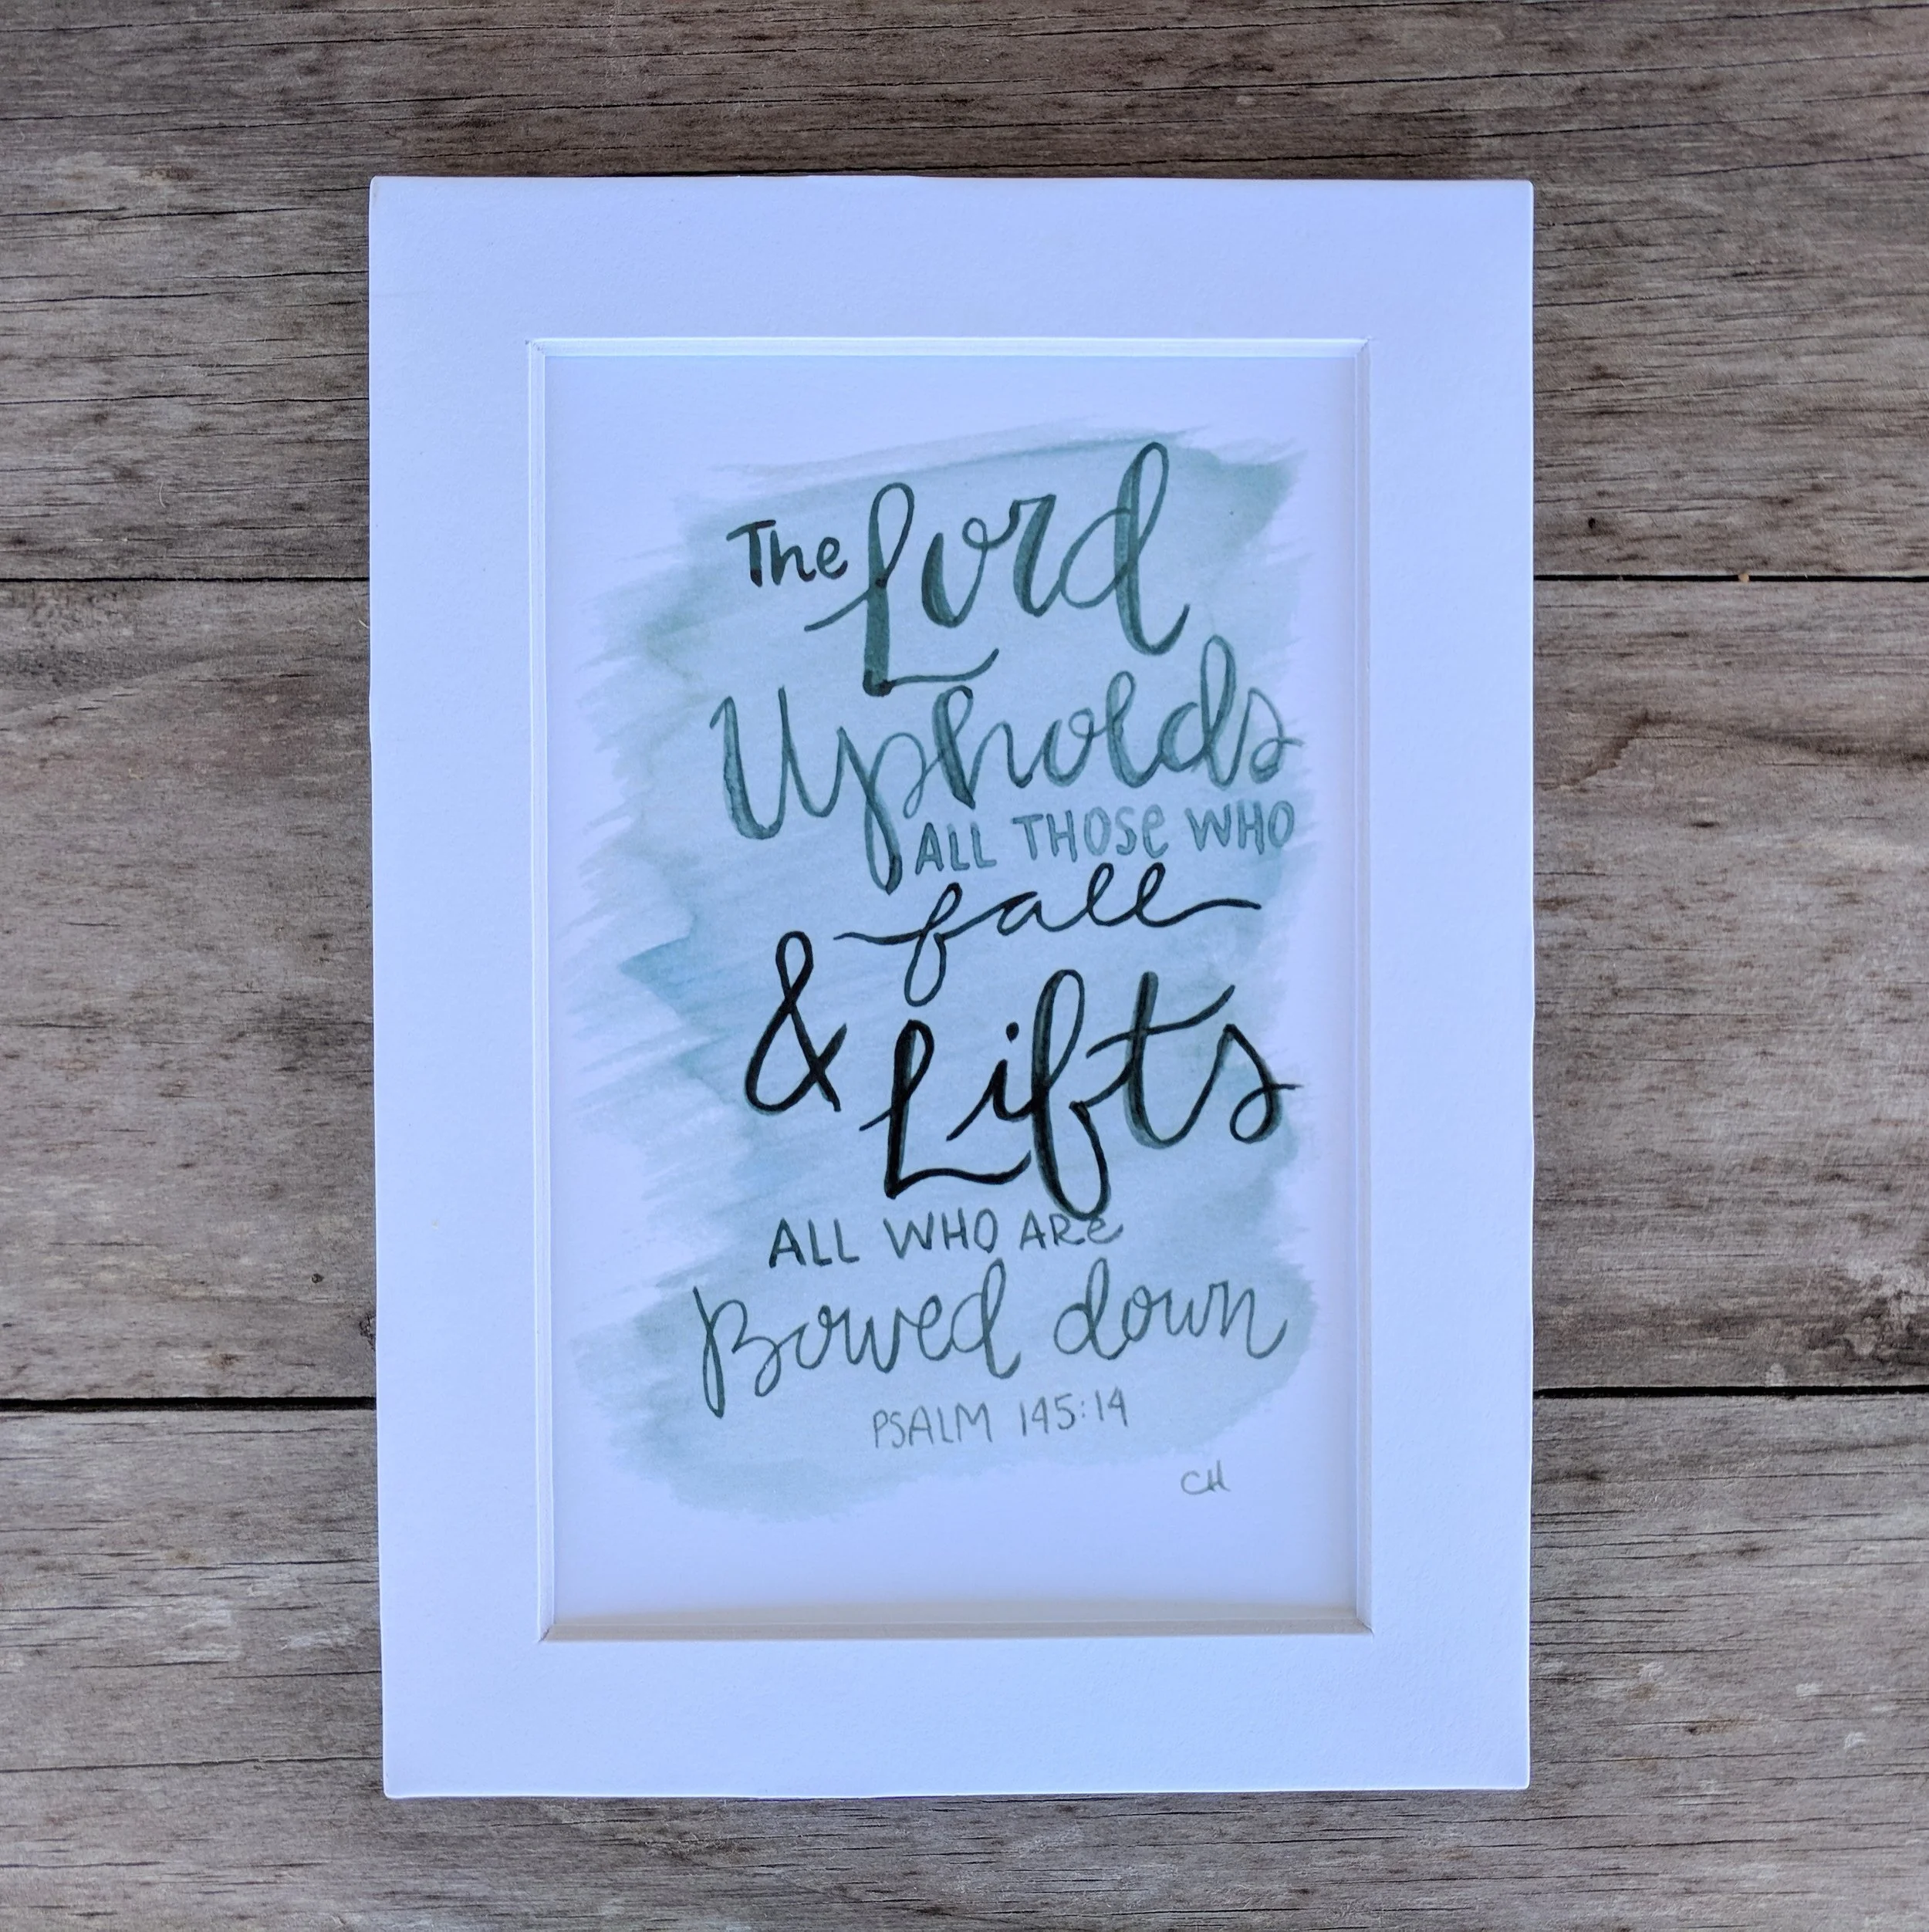 The Lord
Upholds
ALL THOSe WHO
fall
& Lifts
ALL WHO ARe
Bowed down
PSALM 145:14
CH